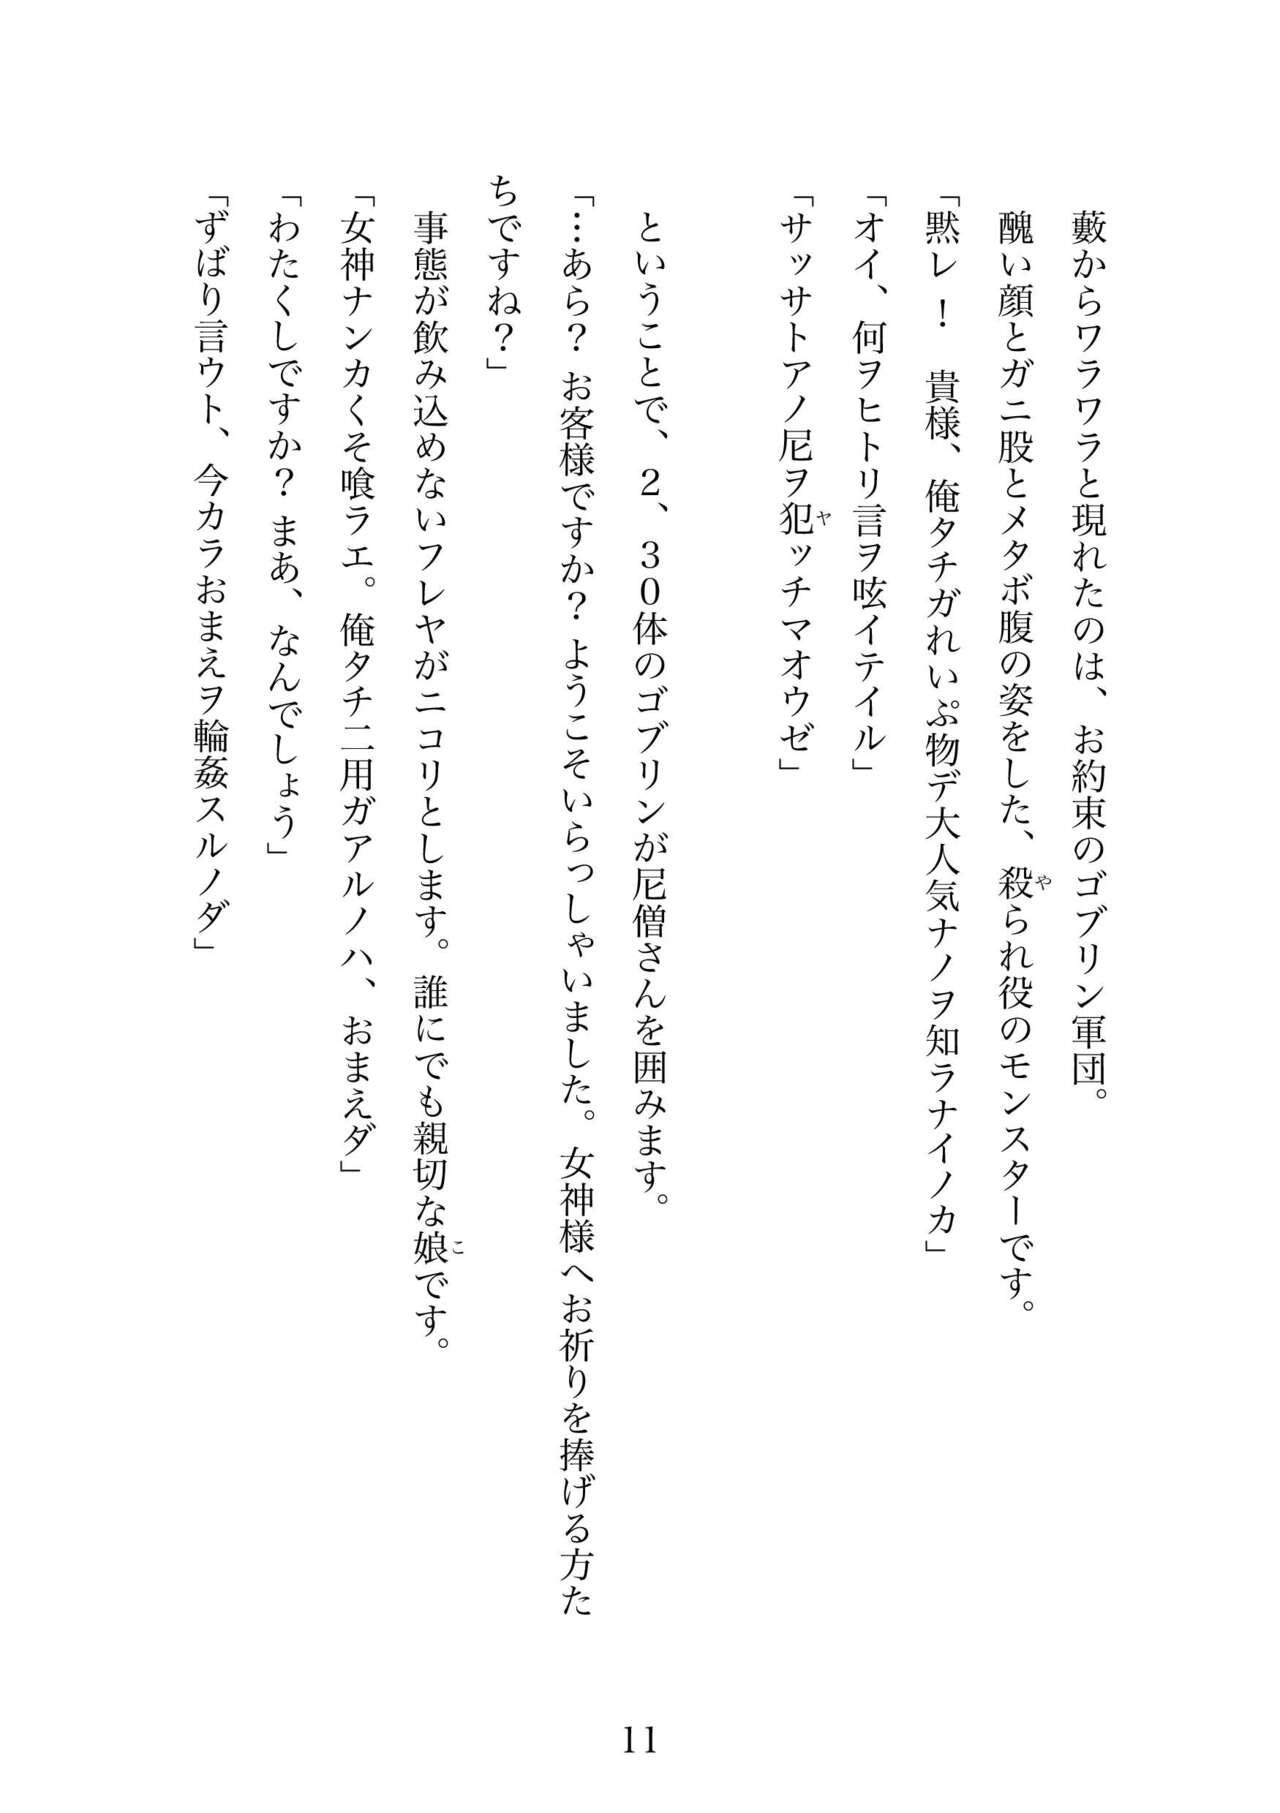 藪からワラワラと現れたのは、お約束のゴブリン軍団。
醜い顔とガニ股とメタボ腹の姿をした、殺られ役のモンスターです。
「黙レ！　貴様、俺タチガれいぷ物デ大人気ナノヲ知ラナイノカ」
「オイ、何ヲヒトリ言ヲ呟イテイル」
「サッサトアノ尼ヲ犯ッチマオウゼ」
ということで、２、３０体のゴブリンが尼僧さんを囲みます。
「…あら？ お客様ですか？ ようこそいらっしゃいました。女神様へお祈りを捧げる方た
ちですね？」
事態が飲み込めないフレヤがニコリとします。誰にでも親切な娘です。
「女神ナンカくそ喰ラエ。俺タチニ用ガアルノハ、おまえダ」
「わたくしですか？ まあ、なんでしょう」
「ずばり言ウト、今カラおまえヲ輪姦スルノダ」
11